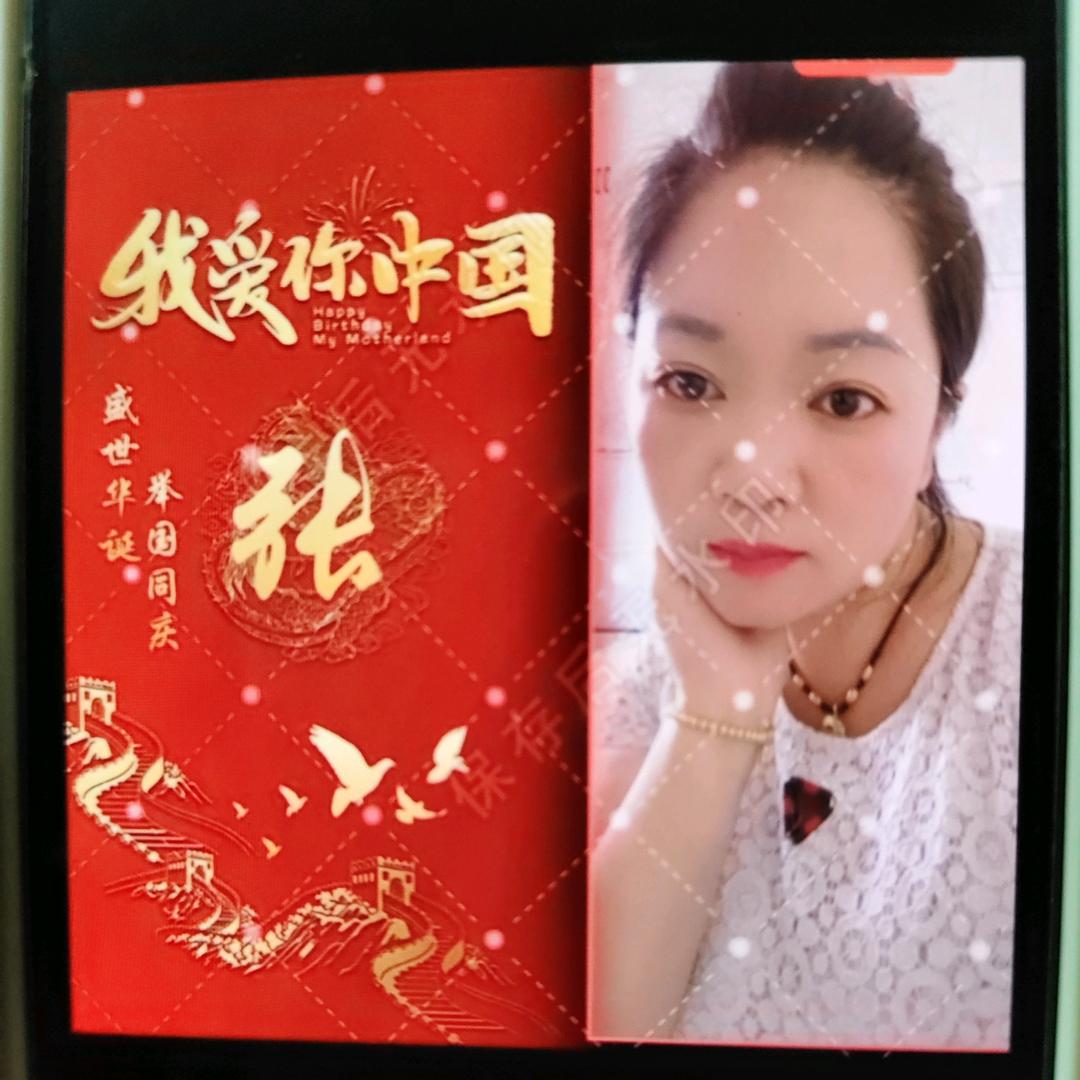 我爱你中国
Happy
Birthday
My Motherland
盛世华诞
举国同庆
张
保存后无水印